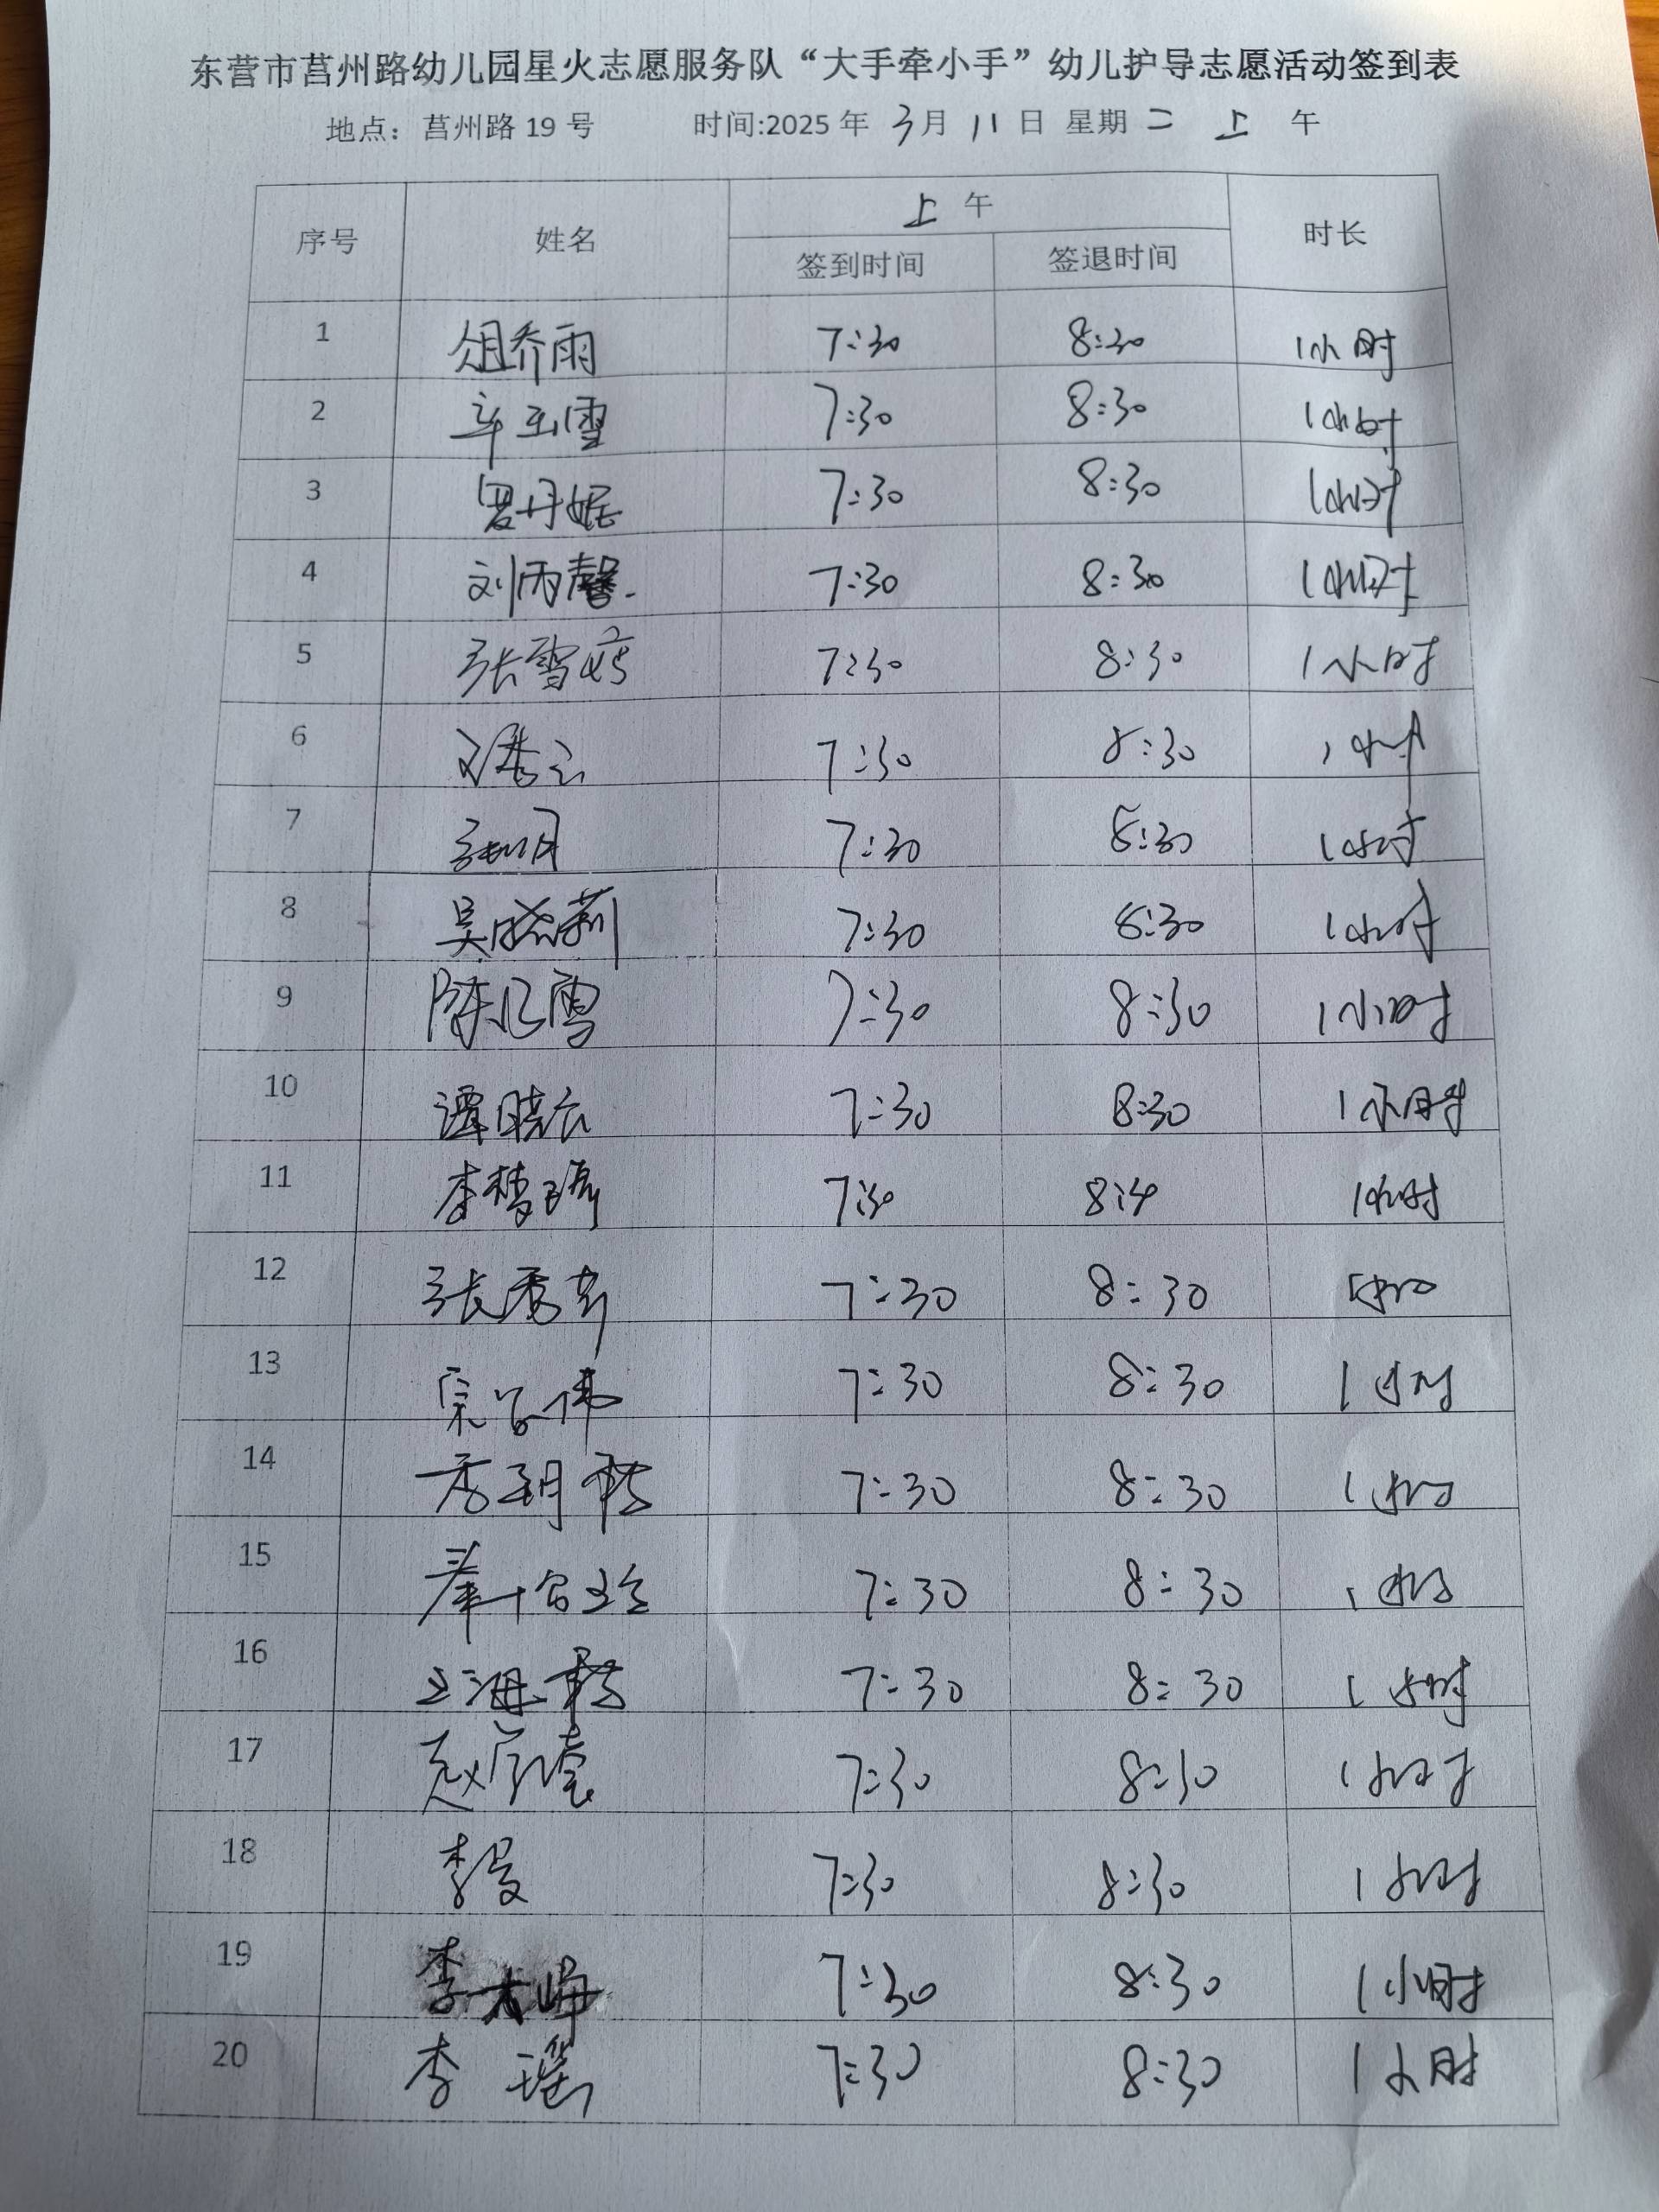 东营市莒州路幼儿园星火志愿服务队“大手牵小手”幼儿护导志愿活动签到表
地点：莒州路 19 号 时间:2025 年 3月 11 日 星期 二 上 午
序号 姓名 上 午 时长
签到时间 签退时间
1 俎乔雨 7:30 8:30 1小时
2 7:30 8:30 1小时
3 罗丹妮 7:30 8:30 1小时
4 刘雨馨 7:30 8:30 1小时
5 张雪婷 7:30 8:30 1小时
6 7:30 8:30 1小时
7 7:30 8:30 1小时
8 吴晓莉 7:30 8:30 1小时
9 陈 雪 7:30 8:30 1小时
10 谭晓 7:30 8:30 1小时
11 李梦瑶 7:30 8:30 1小时
12 张秀芹 7:30 8:30
13 宗 伟 7:30 8:30 1小时
14 7:30 8:30 1小时
15 7:30 8:30 1小时
16 王海 7:30 8:30 1小时
17 赵 7:30 8:30 1小时
18 李曼 7:30 8:30 1小时
19 李 7:30 8:30 1小时
20 李 瑶 7:30 8:30 1小时